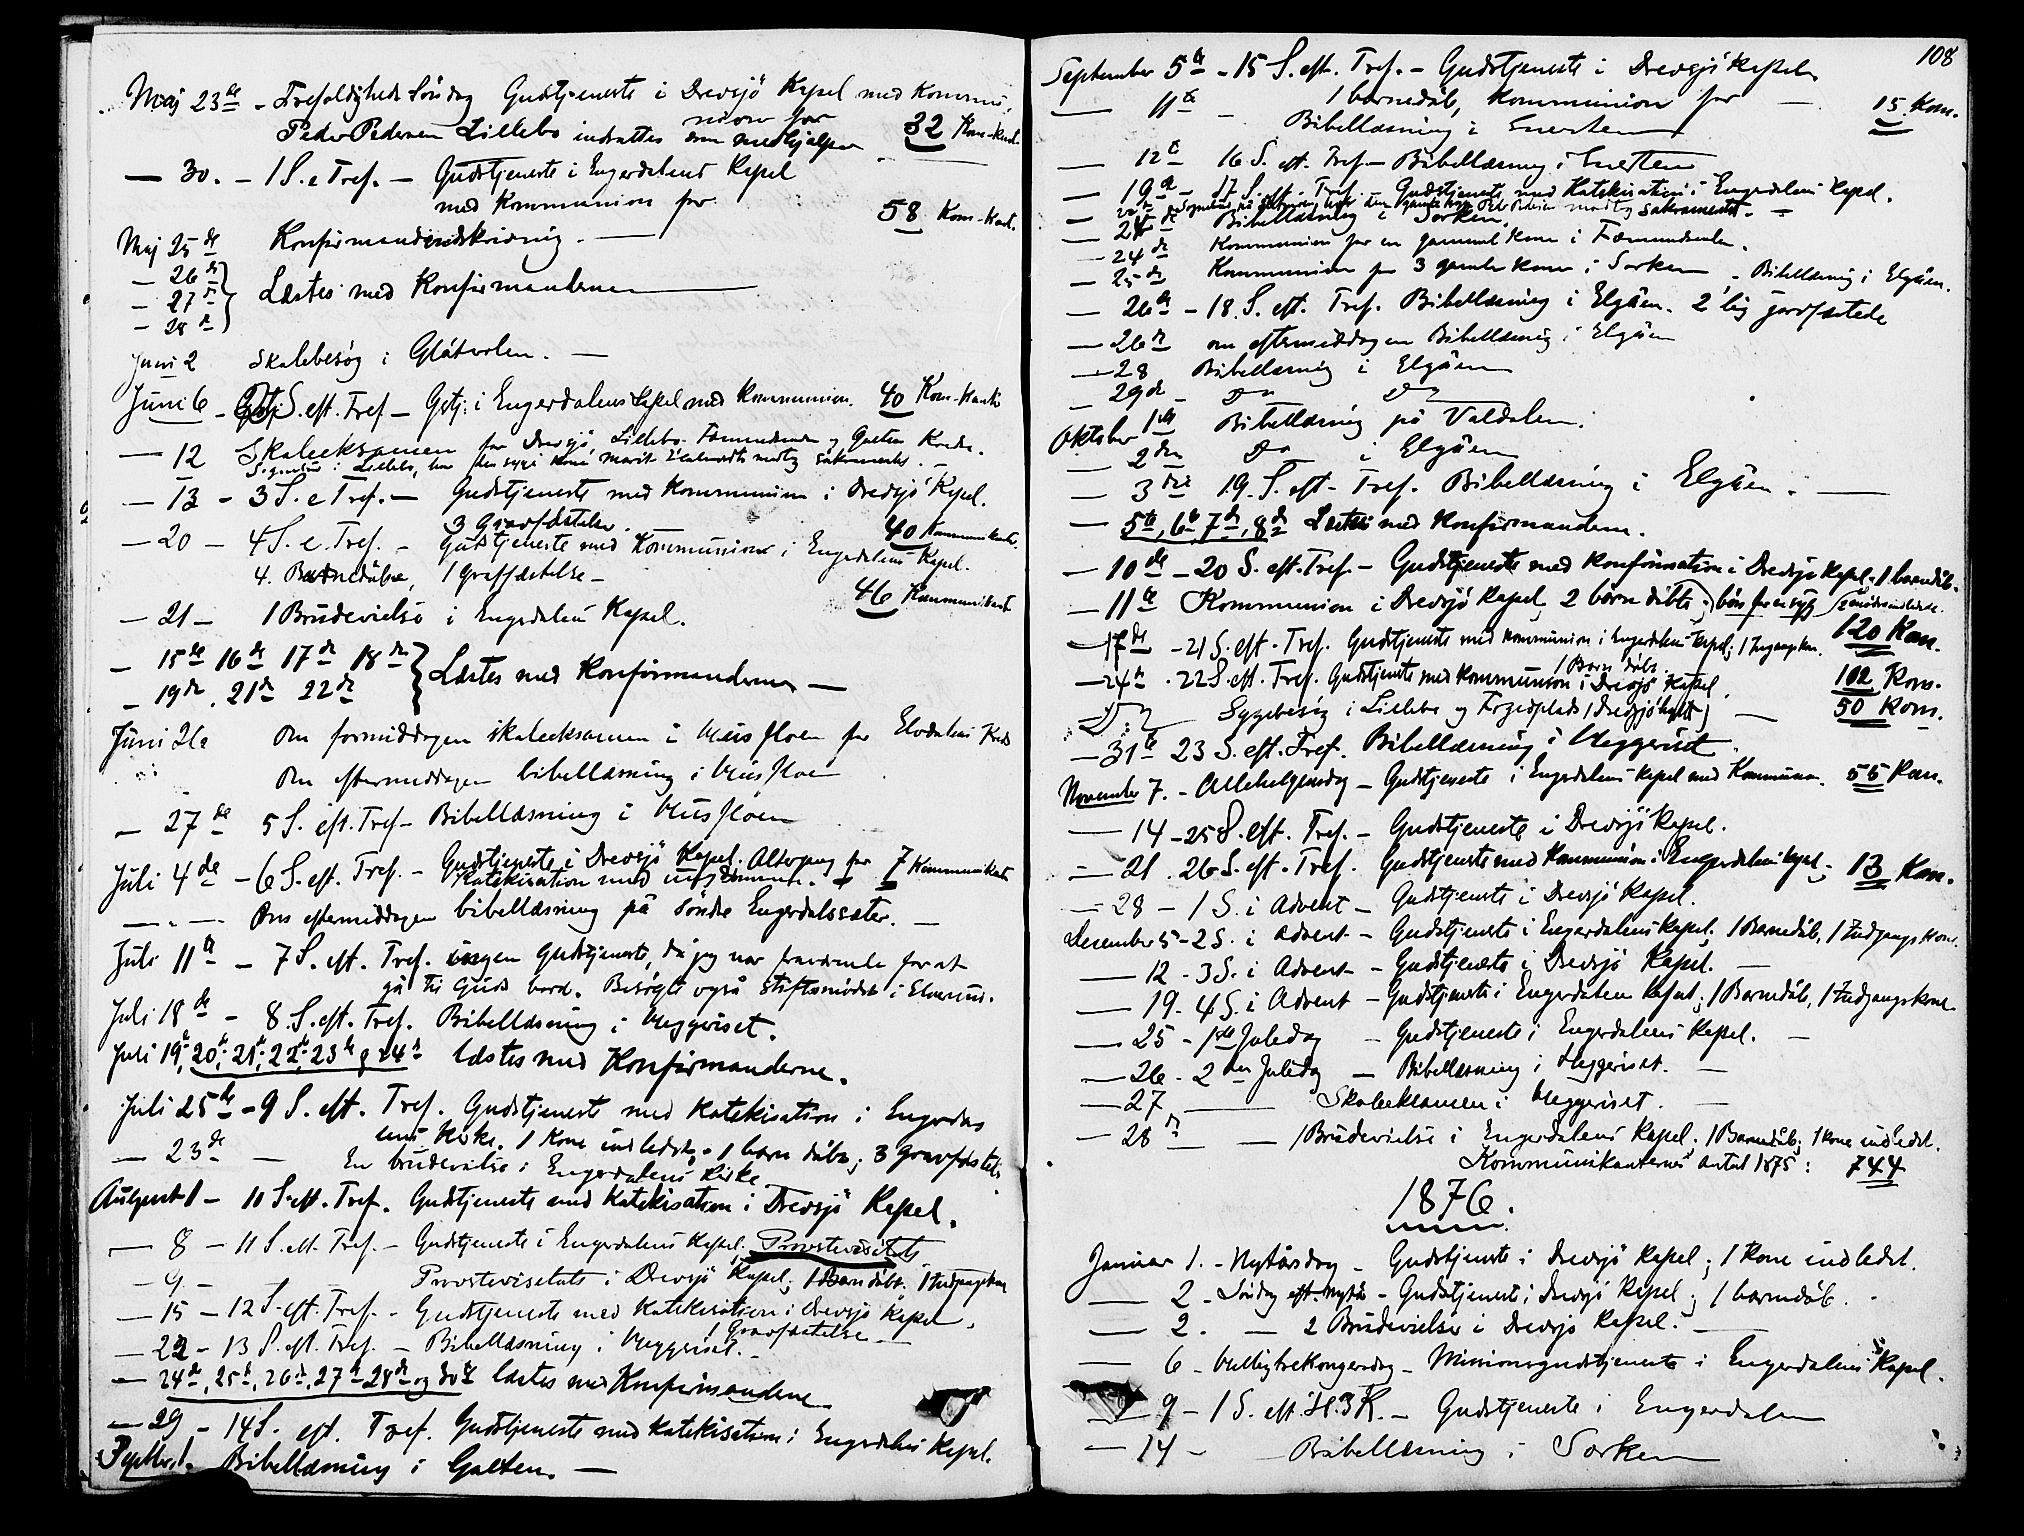 Maj 23de – Trefoldigheds Söndag Gudstjeneste i Drevsjö Kapel med Kommu-
nion for 32 Kom-
Peder Pedersen Lillebo indsattes som medhjælper
— 30. – 1 S. e Tref. – Gudstjeneste i Engerdalens Kapel
med Kommunion for 58 Kom-
Maj 25de Konfirmandindskrivnig. —
– 26de
– 27de Læstes med Konfirmanderne
– 28de
Juni 2 Skolebesög i Glötvolen. —
Juni 6 – S. eft. Tref – Gstj. i Engerdalens Kapel med Kommunion. 40 Kom-
— 12 Skoleeksamen for Drevsjö, Lillebo, Femundsenden og Galten Kreds.
i Lillebo, hvor den syge Kone Marit modtog sakramentet. —
— 13 – 3 S. e Tref. — Gudstjeneste med Kommunion i Drevsjö Kapel.
3 Gravfæstelser. 40 Kommunikant.
— 20 – 4 S. e. Tref. – Gudstjeneste med Kommunion i Engerdalens Kapel.
4. Barnedåbe, 1 Gravfæstelse – 46 Kommunikant
— 21 – 1 Brudevielse i Engerdalens Kapel.
– 15de 16de 17de 18de
– 19de, 21de 22de Læstes med Konfirmanderne —
Juni 26 Om formiddagen skoleeksamen i Husfloen for Elvdalens Kreds
Om eftermiddagen bibellæsning i Husfloen
— 27de 5 S. eft. Tref – Bibellæsning i Husfloen
Juli 4de – 6 S. eft. Tref. – Gudstjeneste i Drevsjö Kapel. Altergang for 7 Kommunikant
Katekisation med ungdommen.
— „ — Om eftermiddagen bibellæsning på Söndre Engerdalssæter. —
Juli 11te – 7 S. eft. Tref. ingen Gudstjeneste, da jeg var fraværende for at
gå til Guds bord. Besögte også Stiftsmödet i Elverum.
Juli 18de – 8 S. eft. Tref. Bibellæsning i Heggeriset.
Juli 19, 20, 21, 22, 23 & 24 læstes med Konfirmanderne.
Juli 25de – 9 S. eft. Tref. Gudstjeneste med Katekisation i Engerda-
lens Kirke. 1 Kone indledet. 1 barn döbt; 3 Gravfæstels.
— 23de — En brudevielse i Engerdalens Kirke
August 1 – 10 S. eft. Tref. Gudstjeneste med Katekisation i Drevsjö Kapel.
— 8 – 11 S. eft. Tref. – Gudstjeneste i Engerdalens Kapel. Provstevisitats
– 9 – Provstevisitats i Drevsjö Kapel; 1 Barn döbt; 1 Indgangskone
— 15 – 12 S. eft. Tref. – Gudstjeneste med Katekisation i Drevsjö Kapel.
1 Gravfæstelse —
— 22 – 13 S. eft. Tref. – Bibellæsning i Heggeriset.
— 24de, 25, 26, 27 28de og 30te læstes med Konfirmanderne
— 29 – 14 S. eft. Tref. Gudstjeneste med Katekisation i Engerdalens Kapel.
Septbr. 1. Bibellæsning i Galten. —
108
September 5te – 15 S. eft. Tref. – Gudstjeneste i Drevsjö Kapel
1 barnedåb, Kommunion for — 15 Kom.
— 11te – Bibellæsning i
— 12te 16 S. eft. Tref – Bibellæsning i
— 19de – 17 S. eft. Tref. – Gudstjeneste med Katekisation i Engerdalens Kapel.
hvor den gamle Peder Pedersen modtog sakramentet. —
— 24de Bibellæsning i Sorken.
— 24de Kommunion for en gammel Kone i Femundsenden.
— 25de Kommunion for 3 gamle Koner i Sorken – Bibellæsnig i Elgåen.
— 26de – 18. S. eft. Tref. Bibellæsning i Elgåen. 2 lig jordfæstede
— 26de om eftermiddagen Bibellæsnig i Elgåen
— 28 Bibellæsnig i Elgåen
— 29de – Do Do
Oktober 1ste Bibellæsning på Valdalen.
— 2den Do i Elgåen
— 3die 19. S. eft. Tref. Bibellæsning i Elgåen. —
— 5te, 6te, 7de, 8de Læstes med Konfirmanderne.
— 10de – 20 S. eft. Tref. – Gudstjeneste med Konfirmation i Drevsjö Kapel. 1 barnedåb.
— 11te Kommunion i Drevsjö Kapel, 2 börn döbte; bön for en syg
120 Kom.
— 17de – 21 S. eft. Tref. Gudstjeneste med Kommunion i Engerdalens Kapel; 1 Ingangskon.
1 Barn döbt. 102 Kom.
— 24de . 22 S. eft. Tref. Gudstjeneste med Kommunion i Drevsjö Kapel.
Sygebesög i Lillebo og (Drevsjöhytt) — 50 Kom.
— 31te 23 S. eft. Tref. Bibellæsning i Heggeriset
November 7. – Allehelgensdag – Gudstjeneste i Engerdalens Kapel med Kommunion. 55 Kom.
— 14 – 25 S. eft. Tref. – Gudstjeneste i Drevsjö Kapel.
— 21 . 26 S. eft. Tref. Gudstjeneste med Kommunion i Engerdalens Kapel. 13 Kom.
— 28 – 1 S. i Advent – Gudstjeneste i Drevsjö Kapel.
Desember 5 – 2 S. i Advent – Gudstjeneste i Engerdalens Kapel. 1 Barnedåb, 1 Indgangskone.
— 12 – 3 S. i Advent – Gudstjeneste i Drevsjö Kapel. —
— 19. 4 S. i Advent – Gudstjeneste i Engerdalen Kapel; 1 Barnedåb, 1 Indgangskone
— 25 – 1ste Juledag – Gudstjeneste i Engerdalens Kapel. —
— 26 – 2den Juledag – Bibellæsning i Heggeriset. —
— 27 — Skoleeksamen i Heggeriset. —
— 28de — 1 Brudevielse i Engerdalens Kapel. 1 Barnedåb; 1 Kone indledt.
Kommunikanternes antal 1875: 744
1876.
Januar 1. – Nytårsdag – Gudstjeneste i Drevsjö Kapel; 1 Kone indledet.
— 2 – Söndag eft. Nytår – Gudstjeneste i Drevsjö Kapel; 1 barnedåb.
— 2. — 2 Brudevielser i Drevsjö Kapel. —
— 6 – Helligtrekongersdag – Missionsgudstjeneste i Engerdalens Kapel.
— 9 – 1 S. eft. H. 3 K. – Gudstjeneste i Engerdalen
— 14 – Bibellæsning i Sorken